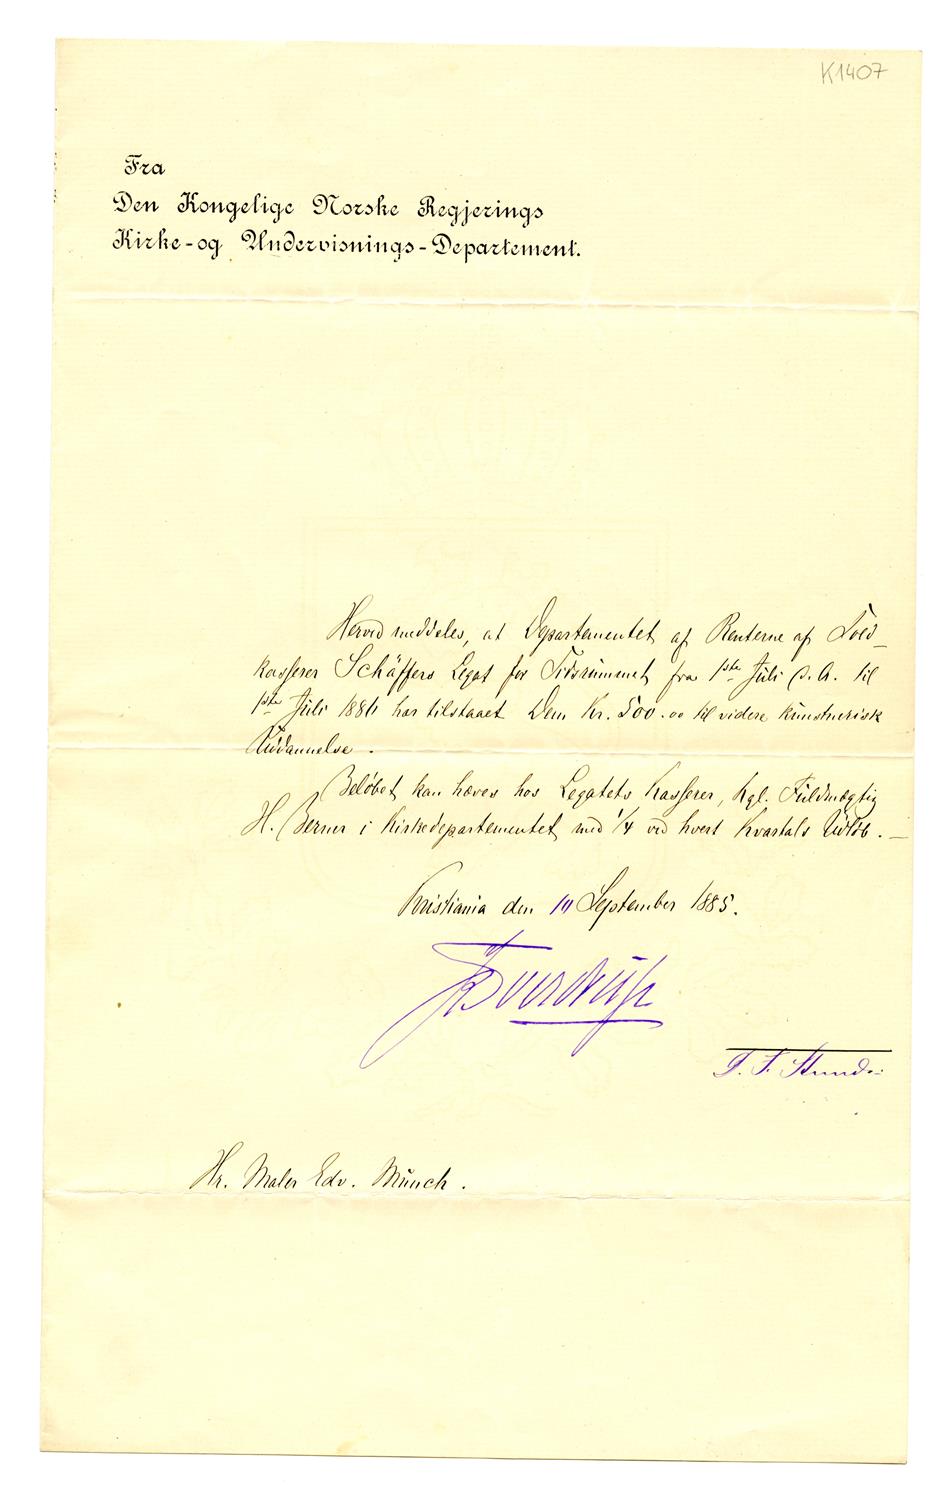 K1407
Fra
Den Kongelige Norske Regjerings
Kirke-og Undervisnings-Departement.
Herved meddeles, at Departementet af Renterne af Told-
kasserer Schäffers Legat for Tidsrummet fra 1ste Juli d. A. til
1ste Juli 1886 har tilstaaet Dem Kr. 500.00 til videre kunstnerisk
Uddannelse.
Beløbet kan hæves hos Legatets Kasserer, Kgl. Fuldmægtig
H. Berner i Kirkedepartementet med 1/4 ved hvert Kvartals Udløb.
Kristiania den September 1885.
Sverdrup
Hr. Maler Edv. Munch.